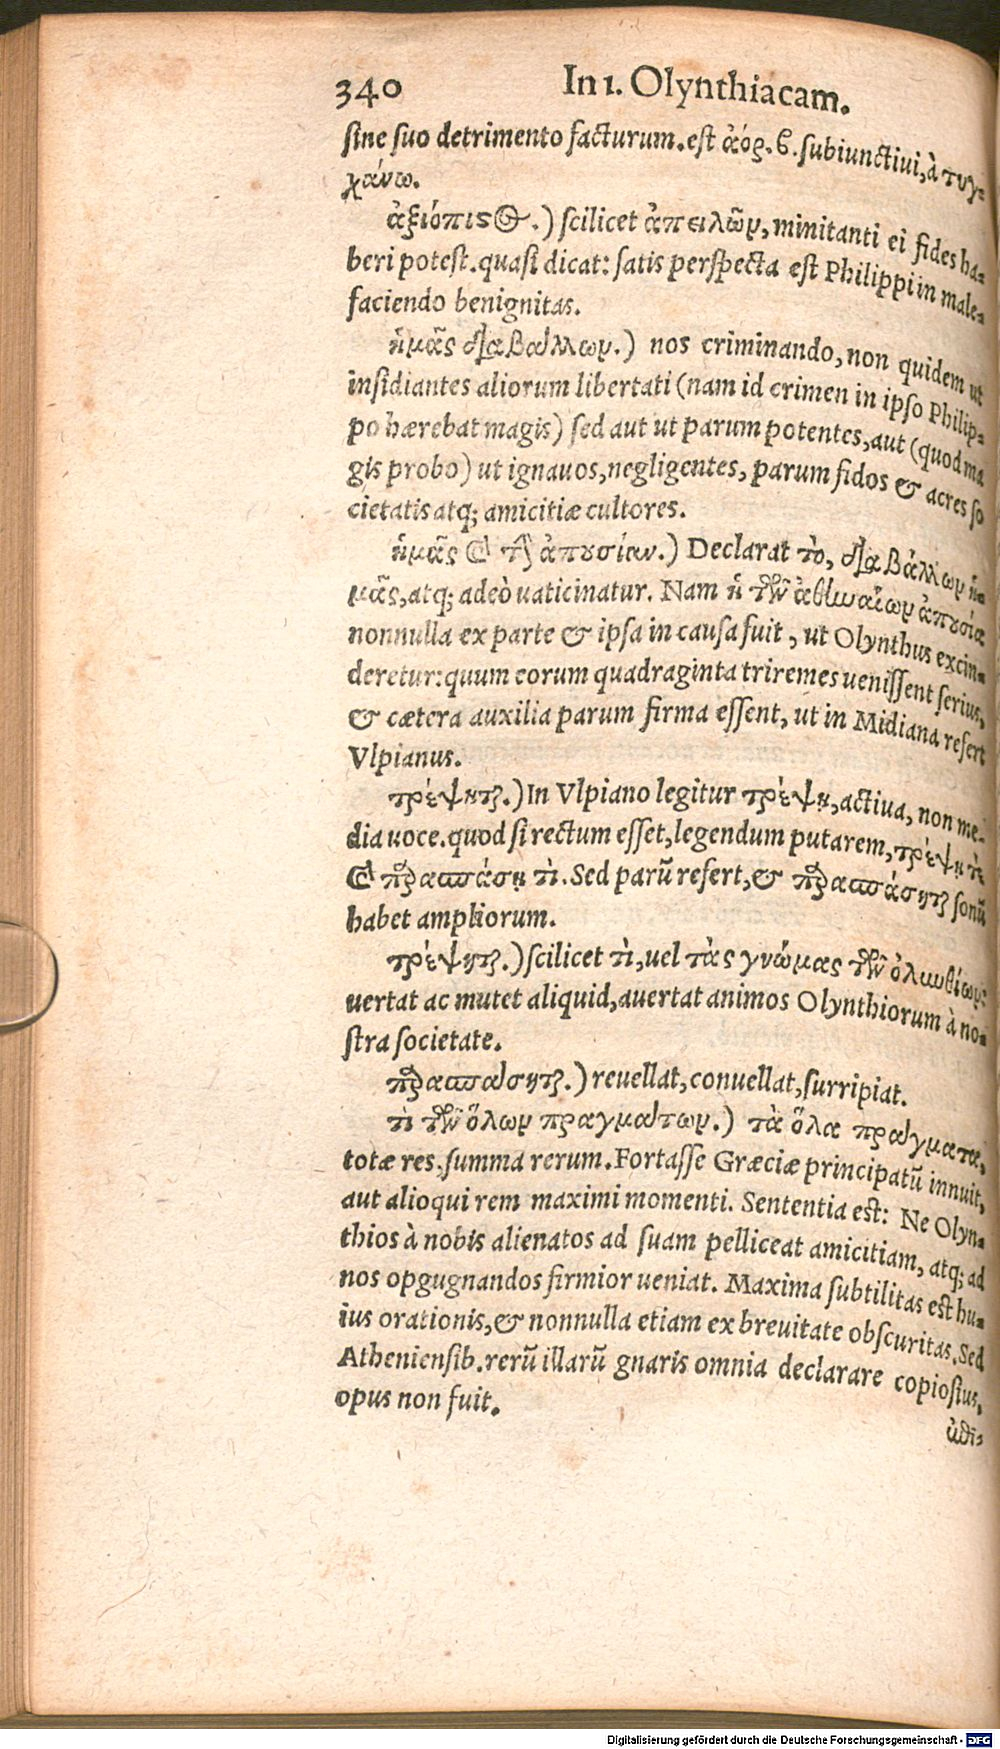 340 In 1. Olynthiacam.
sine suo detrimento facturum. est ἀόρ. β. subiunctiui, à τυγ-
χάνω.
ἀξιόπιστος.) scilicet ἀπειλῶν, minitanti ei fides ha-
beri potest. quasi dicat: satis perspecta est Philippi in male-
faciendo benignitas.
ἡμᾶς διαβάλλων.) nos criminando, non quidem ut
insidiantes aliorum libertati (nam id crimen in ipso Philip-
po hærebat magis) sed aut ut parum potentes, aut (quod ma
gis probo) ut ignauos, negligentes, parum fidos & acres so
cietatis atq; amicitiæ cultores.
ἡμᾶς καὶ τὴν ἀπουσίαν.) Declarat τὸ, διαβάλλων ἡ-
μᾶς, atq; adeò uaticinatur. Nam ἡ τῶν ἀθηναίων ἀπουσία
nonnulla ex parte & ipsa in causa fuit, ut Olynthus excin-
deretur: quum eorum quadraginta triremes uenissent serius,
& cætera auxilia parum firma essent, ut in Midiana refert
Vlpianus.
τρέψηται.) In Vlpiano legitur τρέψῃ, actiua, non me-
dia uoce. quod si rectum esset, legendum putarem, τρέψῃ τὶ
καὶ παρασπάσῃ τὶ. Sed parū refert, & παρασπάσηται sonū
habet ampliorum.
τρέψηται.) scilicet τὶ, uel τὰς γνώμας τῶν ὀλυνθίων:
uertat ac mutet aliquid, auertat animos Olynthiorum à no-
stra societate.
παρασπάσηται.) reuellat, conuellat, surripiat.
τὶ τῶν ὅλων πραγμάτων.) τὰ ὅλα πράγματα,
totæ res. summa rerum. Fortasse Græciæ principatū innuit,
aut alioqui rem maximi momenti. Sententia est: Ne Olyn-
thios à nobis alienatos ad suam pelliceat amicitiam, atq; ad
nos opgugnandos firmior ueniat. Maxima subtilitas est hu-
ius orationis, & nonnulla etiam ex breuitate obscuritas. Sed
Atheniensib. rerū illarū gnaris omnia declarare copiosius,
opus non fuit.
Digitalisierung gefördert durch die Deutsche Forschungsgemeinschaft - DFG